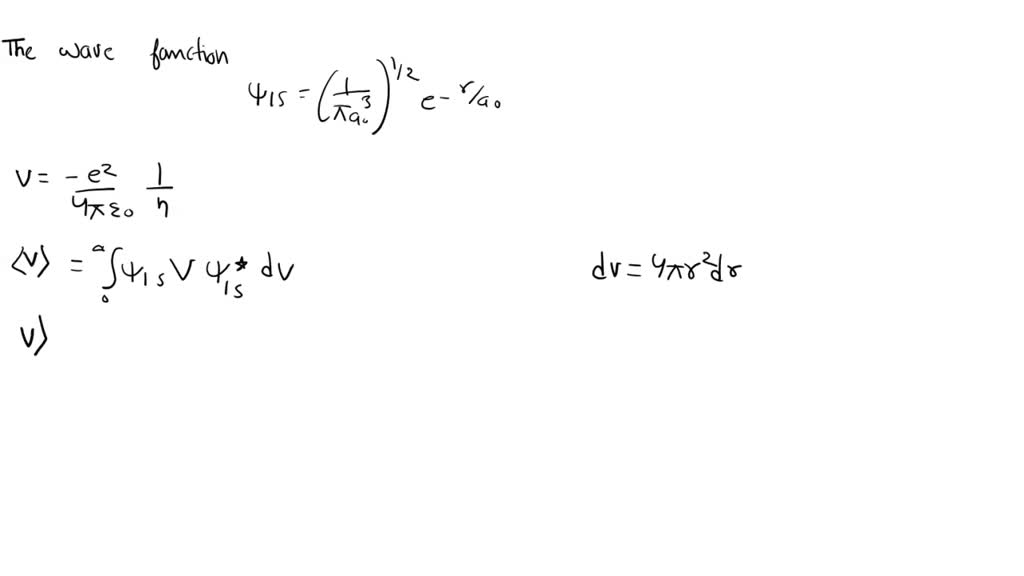 The wave function
ψ1s = (1/πa₀³)^1/2 e - r/a₀
V = -e²/4πε₀ 1/η
⟨V⟩ = ∫₀^a ψ1s V ψ1s* dv dv = 4πr²dr
V⟩